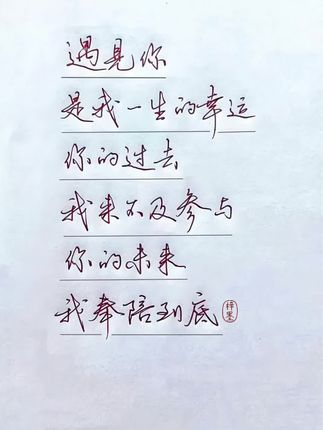 遇见你
是我一生的幸运
你的过去
我来不及参与
你的未来
我奉陪到底